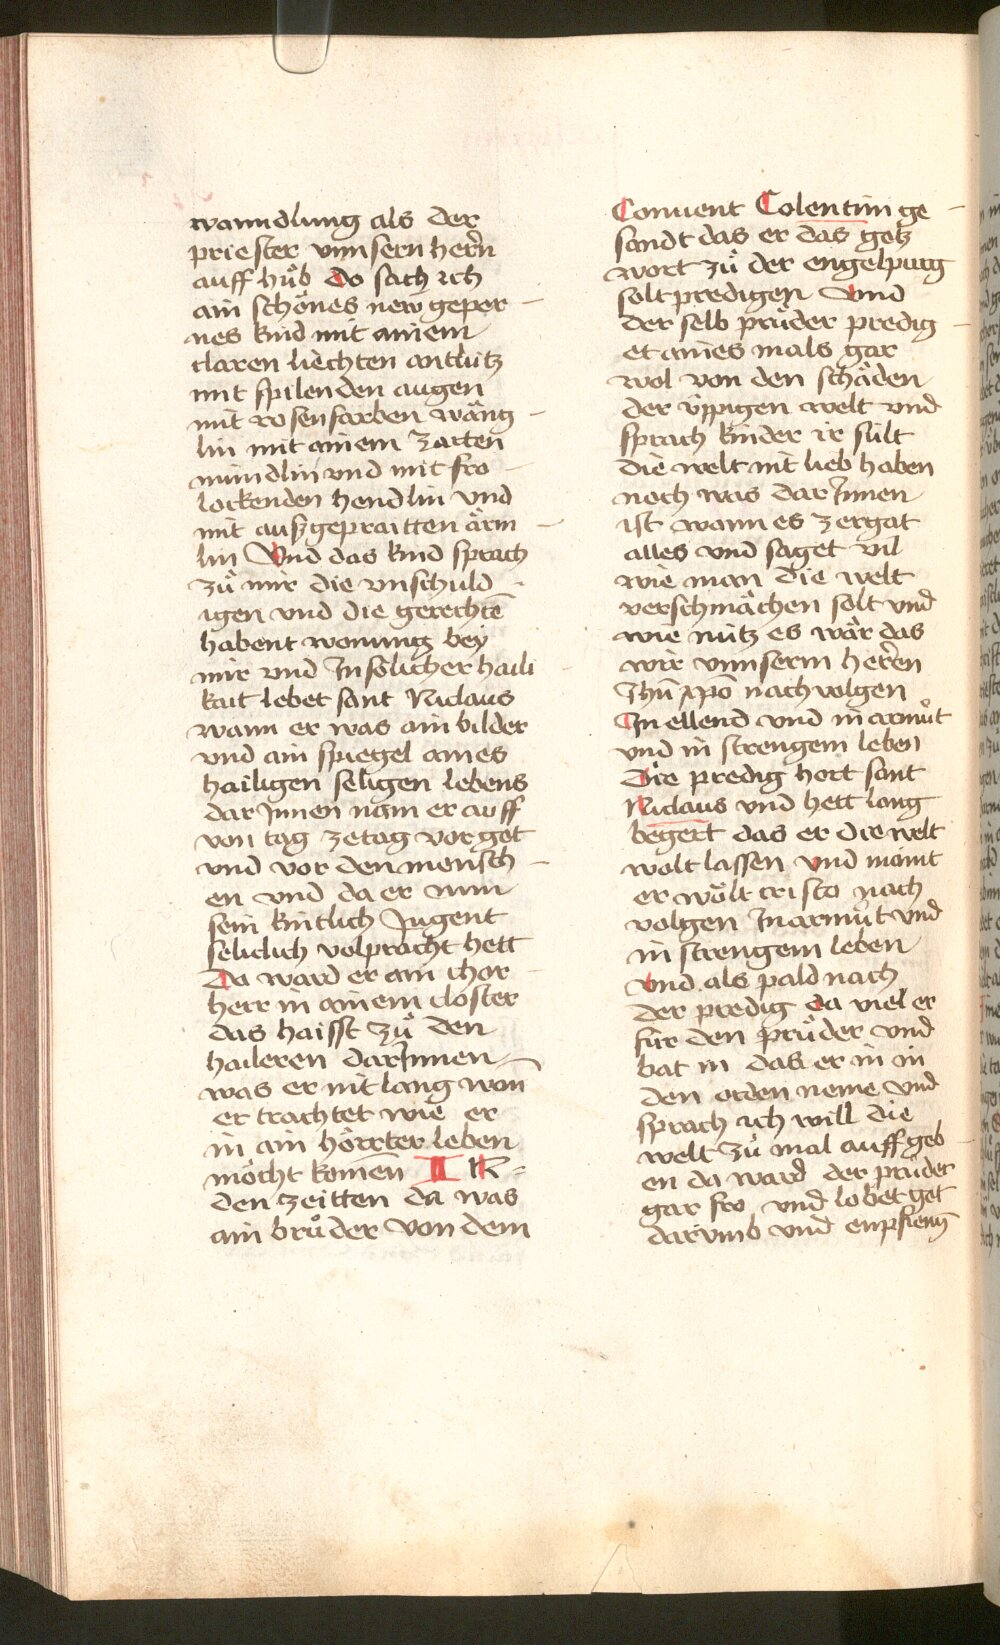 wanndlung als der
priester vnnsern hern̄
auff hůb do sach ich
ain schönes new gepor
nes kind mit ainem
claren liechten antlütz
mit spilenden augen
mit rosenfarben wäng
lin mit ainem zarten
mündlin vnd mit fro
lockenden hendlin vnd
mit außgepraitten ärm
lin Vnd das kind sprach
zů mir die vnschuld
igen vnd die gerechtē
habent wonung bey
mir vnd In solicher haili
kait lebet sant Niclaus
wann er was ain bilder
vnd ain spiegel aines
hailigen seligen lebens
dar Jnnen nam er auff
von tag zetag vor get
vnd vor den mensch
en vnd da er nun
sein kintlich Jugent
seliclich volpracht hett
Da ward er ain chor
herr in ainem closter
das haisst zů den
haileren dar Jnnen
was er nit lang won̄
er trachtet wie er
in ain hörrter leben
möcht komen̄ IN
den zeitten da was
ain brůder von dem
Conuent Colentim ge
sandt das er das gotz
wort zů der engelpurg
solt predigen Vnd
der selb průder predig
et aines mals gar
wol von den schäden
der üppigen welt vnd
sprach kinder ir sült
die welt nit lieb haben
noch was dar Jnnen
ist wann es zergat
alles vnd saget vil
wie man die welt
verschmächen solt vnd
wie nütz es wär das
wir vnnserm herren
Jhū xpō nachvolgen
In ellend vnd in armůt
vnd in strengem leben
Die predig hort sant
Niclaus vnd hett lang
begert das er die welt
wolt lassen vnd maint
er wölt cristo nach
volgen In armůt vnd
in strengem leben
Vnd als pald nach
der predig da viel er
für den průder vnd
bat in das er in in
den orden neme vnd
sprach ich will die
welt zů mal auff geb
en da ward der průder
gar fro vnd lobet get
darumb vnd enpfieng